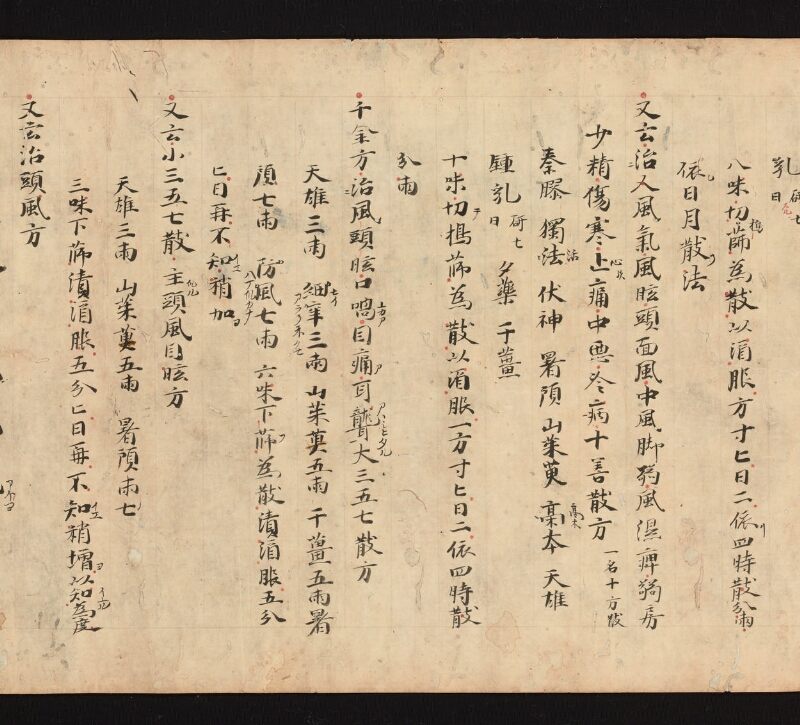 乳 研七日
八味切搗篩為散以酒服方寸匕日二依四時散分兩
依日月散法
又云治人風氣風眩頭面風中風脚弱風濕痺
少精傷寒止痛中惡冷病十善散方 一名十方散
秦膠 獨活 伏神 暑預 山茱萸 藁本 天雄
鍾乳 研七日 夕藥 干薑
十味切搗篩為散以酒服一方寸匕日二依四時散
分兩
千金方治風頭眩口喎目痛耳聾大三五七散方
天雄三兩 細辛三兩 山茱萸五兩 干薑五兩 署
預七兩 防風七兩 六味下篩為散漬酒服五分
匕日再不知稍加
又云小三五七散主頭風目眩方
天雄三兩 山茱萸五兩 署預兩七
三味下篩漬酒服五分匕日再不知稍增以知為度
又云治頭風方